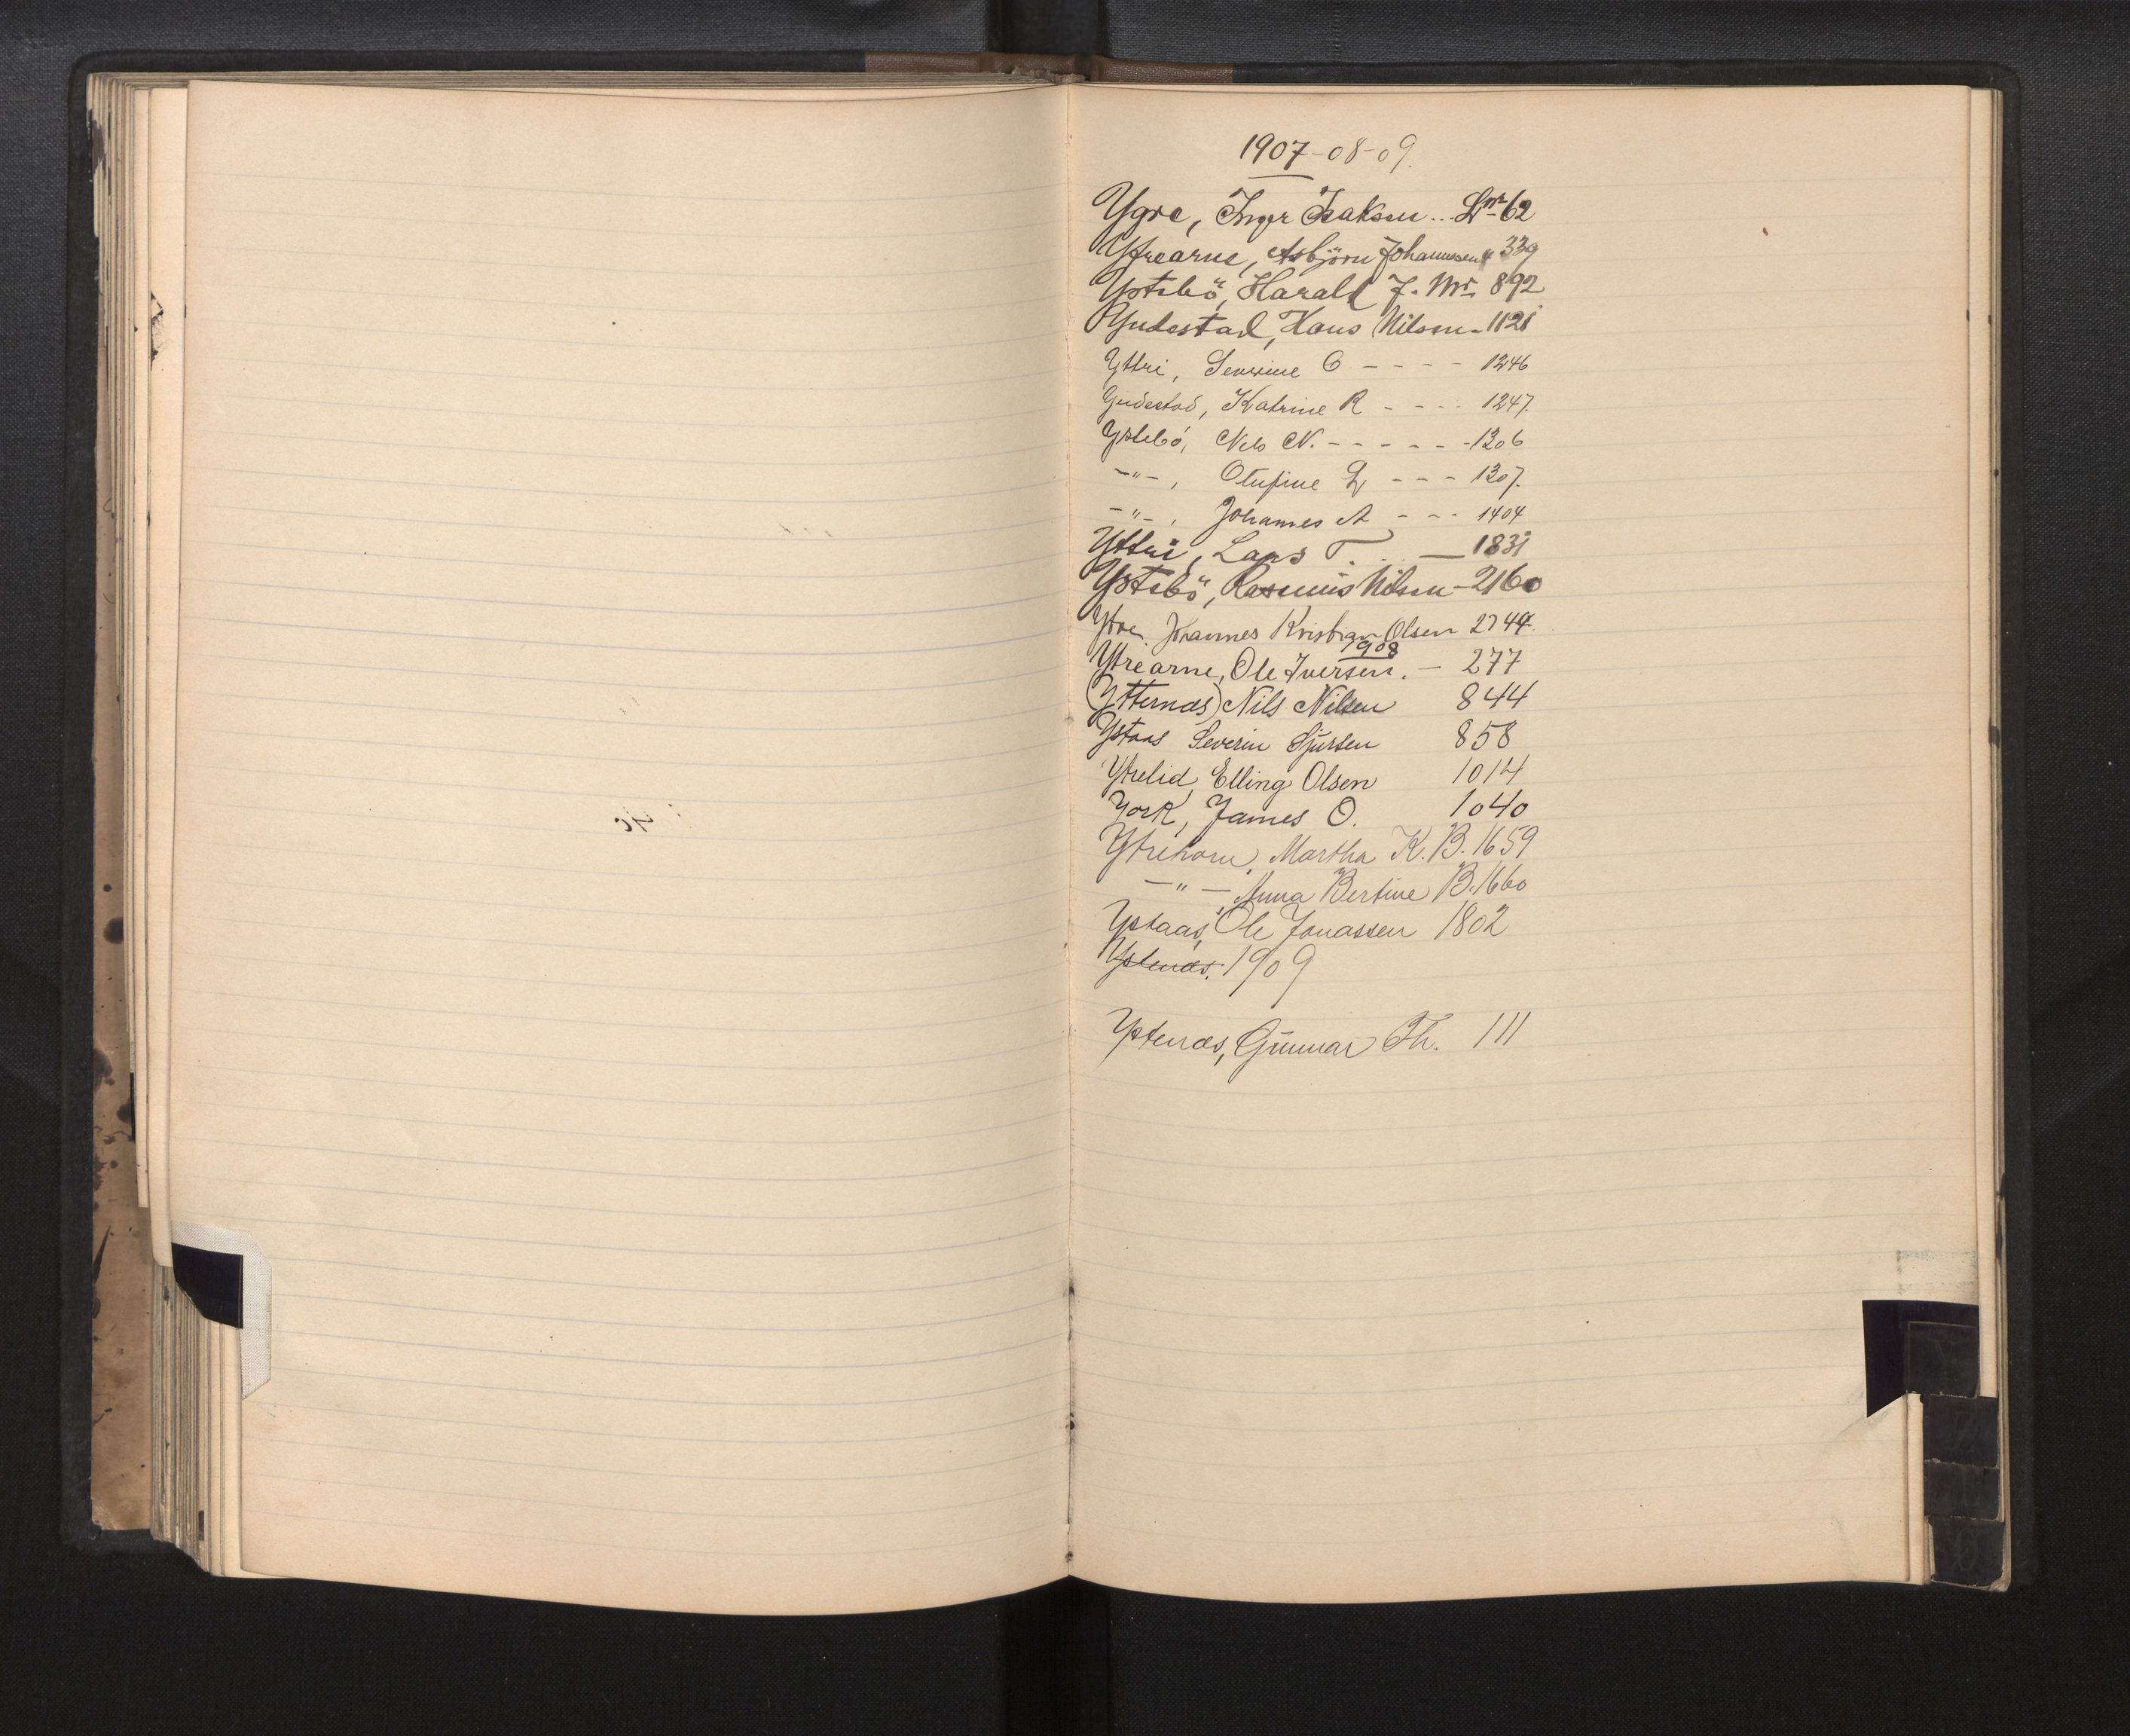 1907-08-09.
Ygre, Inger Isaksen... Lnr 62
Ytrearne, Asbjörn Johannesen 339
Ystebö, Harald J. Nr 892
Gudestad, Hans Nilsen - 1121
Yttri, Severine O - - - - 1246
Gudestad, Katrine R - - - - 1247.
Ystebö, Nels N. - - - - - - 1306
-"-, Olufine L - - - 1307.
-"-, Johannes A - - - 1404
Yttri, Lars T. . . — 1831
Ystebö, Rasmus Nilsen - 2160
Ytre, Johannes Kristian Olsen 2744.
1908
Ytrearne, Ole Iversen. — 277
(Ytternæs) Nils Nilsen 844
Ystaas Severin Sjursen 858
Ytrelid, Elling Olsen 1014
York, James O. 1040
Ytrehorn, Martha K. B. 1659
— " —, Anna Bertine B. 1660
Ystaas, Ole Jonassen 1802
Ystenæs. 1909
Ystenæs, Gunnar Th. 111